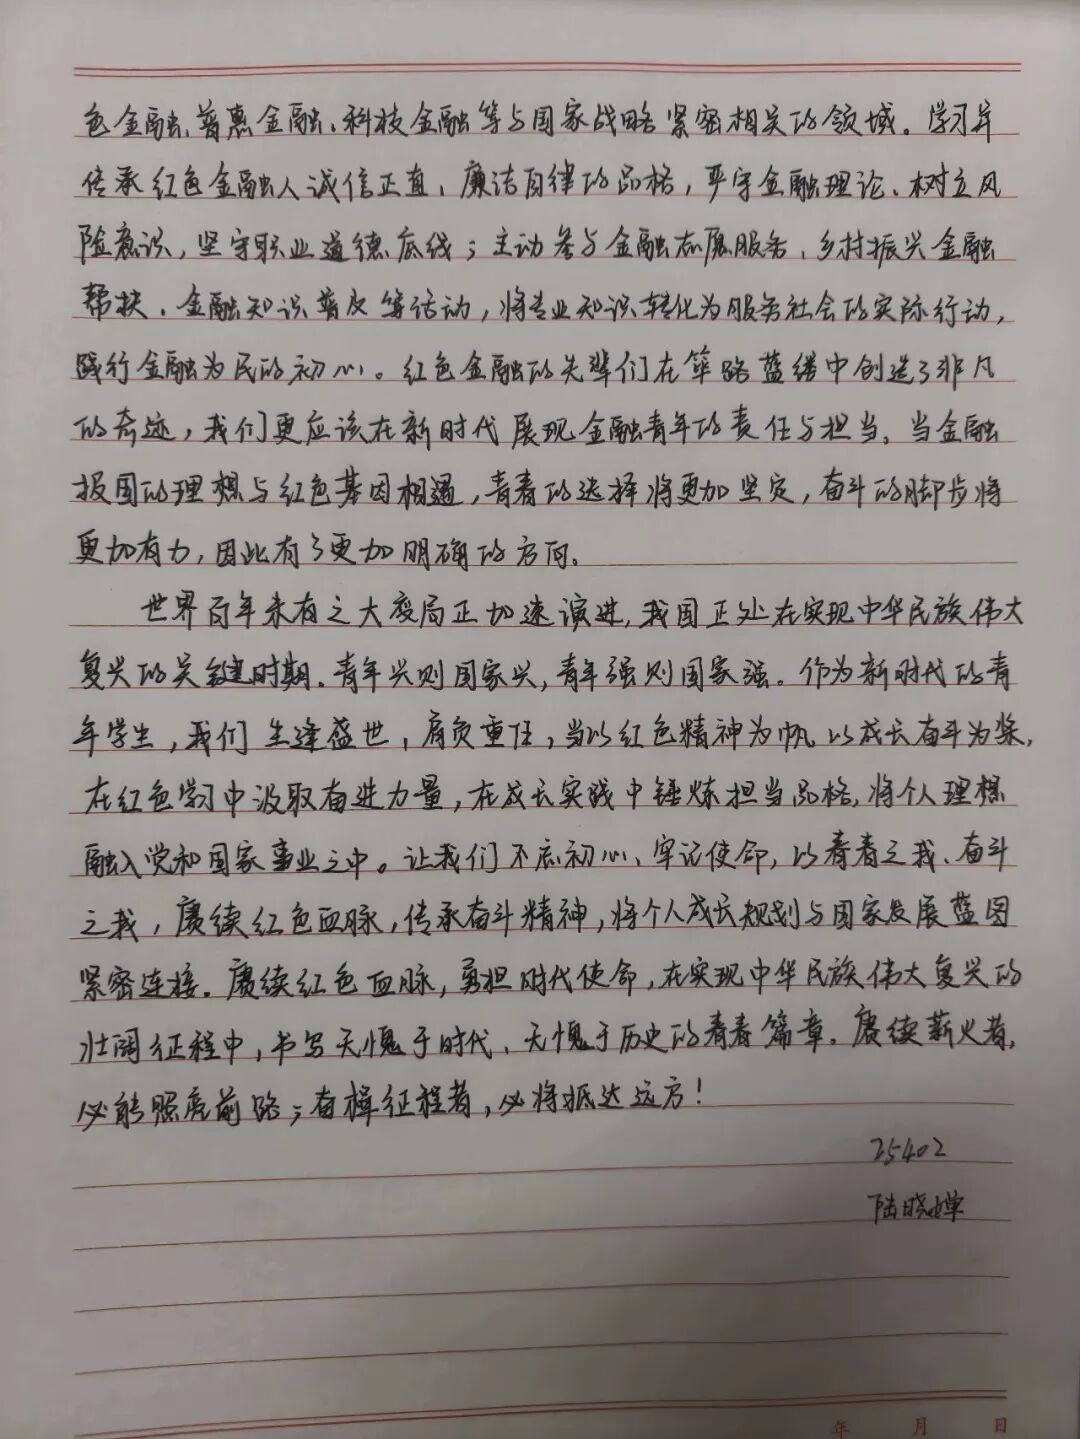 色金融、普惠金融、科技金融等与国家战略紧密相关的领域。学习并
传承红色金融人诚信正直、廉洁自律的品格，严守金融理论、树立风
险意识，坚守职业道德底线；主动参与金融志愿服务、乡村振兴金融
帮扶、金融知识普及等活动，将专业知识转化为服务社会的实际行动，
践行金融为民的初心。红色金融的先辈们在筚路蓝缕中创造了非凡
的奇迹，我们更应该在新时代展现金融青年的责任与担当。当金融
报国的理想与红色基因相遇，青春的选择将更加坚定，奋斗的脚步将
更加有力，因此有了更加明确的方向。
世界百年未有之大变局正加速演进，我国正处在实现中华民族伟大
复兴的关键时期。青年兴则国家兴，青年强则国家强。作为新时代的青
年学生，我们生逢盛世，肩负重任，当以红色精神为帆，以成长奋斗为桨，
在红色学习中汲取奋进力量，在成长实践中锤炼担当品格，将个人理想
融入党和国家事业之中。让我们不忘初心、牢记使命，以青春之我、奋斗
之我，赓续红色血脉，传承奋斗精神，将个人成长规划与国家发展蓝图
紧密连接。赓续红色血脉，勇担时代使命，在实现中华民族伟大复兴的
壮阔征程中，书写无愧于时代、无愧于历史的青春篇章。赓续薪火者，
必能照亮前路；奋楫征程者，必将抵达远方！
25402
陆晓婵
年 月 日